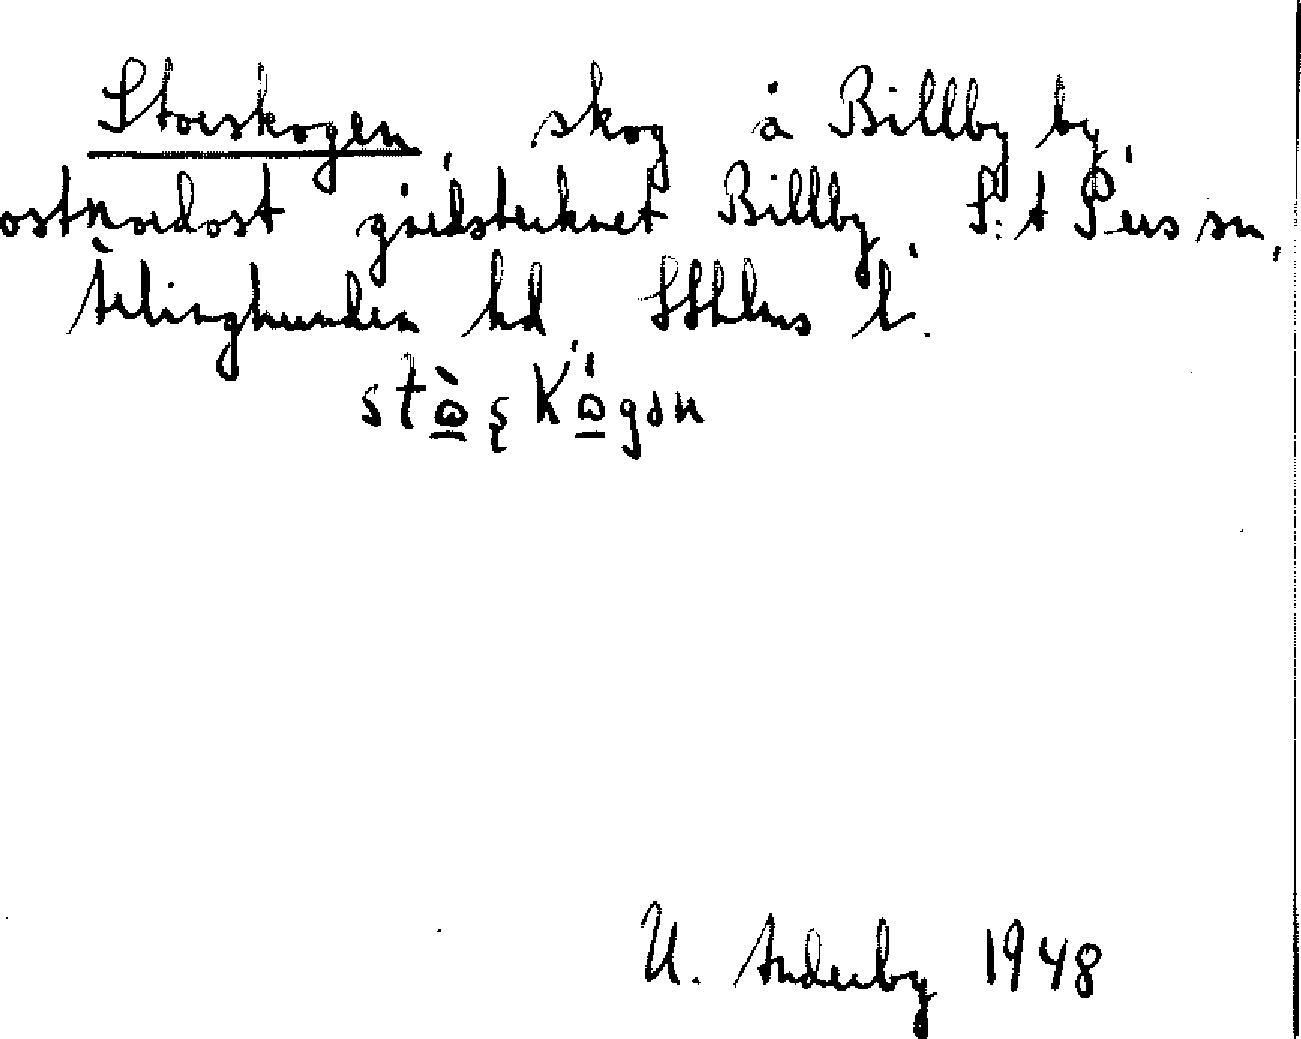 Storskogen, skog å Billby by,
ostnordost gårdstecknet Billby, S:t Pers sn,
Ærlinghundra hd, Sthlms l.
stò̱ʂkó̱gən
U. Anderby 1948